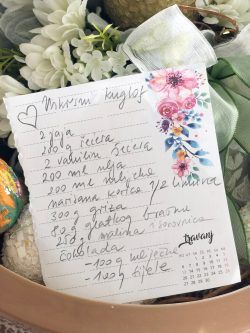 Uskrsni kuglof
2 jaja
200 g šećera
2 vanilin šećera
200 ml ulja
200 ml mlijeka
naribana korica 1/2 limuna
300 g griza
80 g glatkog brašna
250 g malina i borovnica
čokolada
- 100 g mliječne
- 100 g bijele
travanj